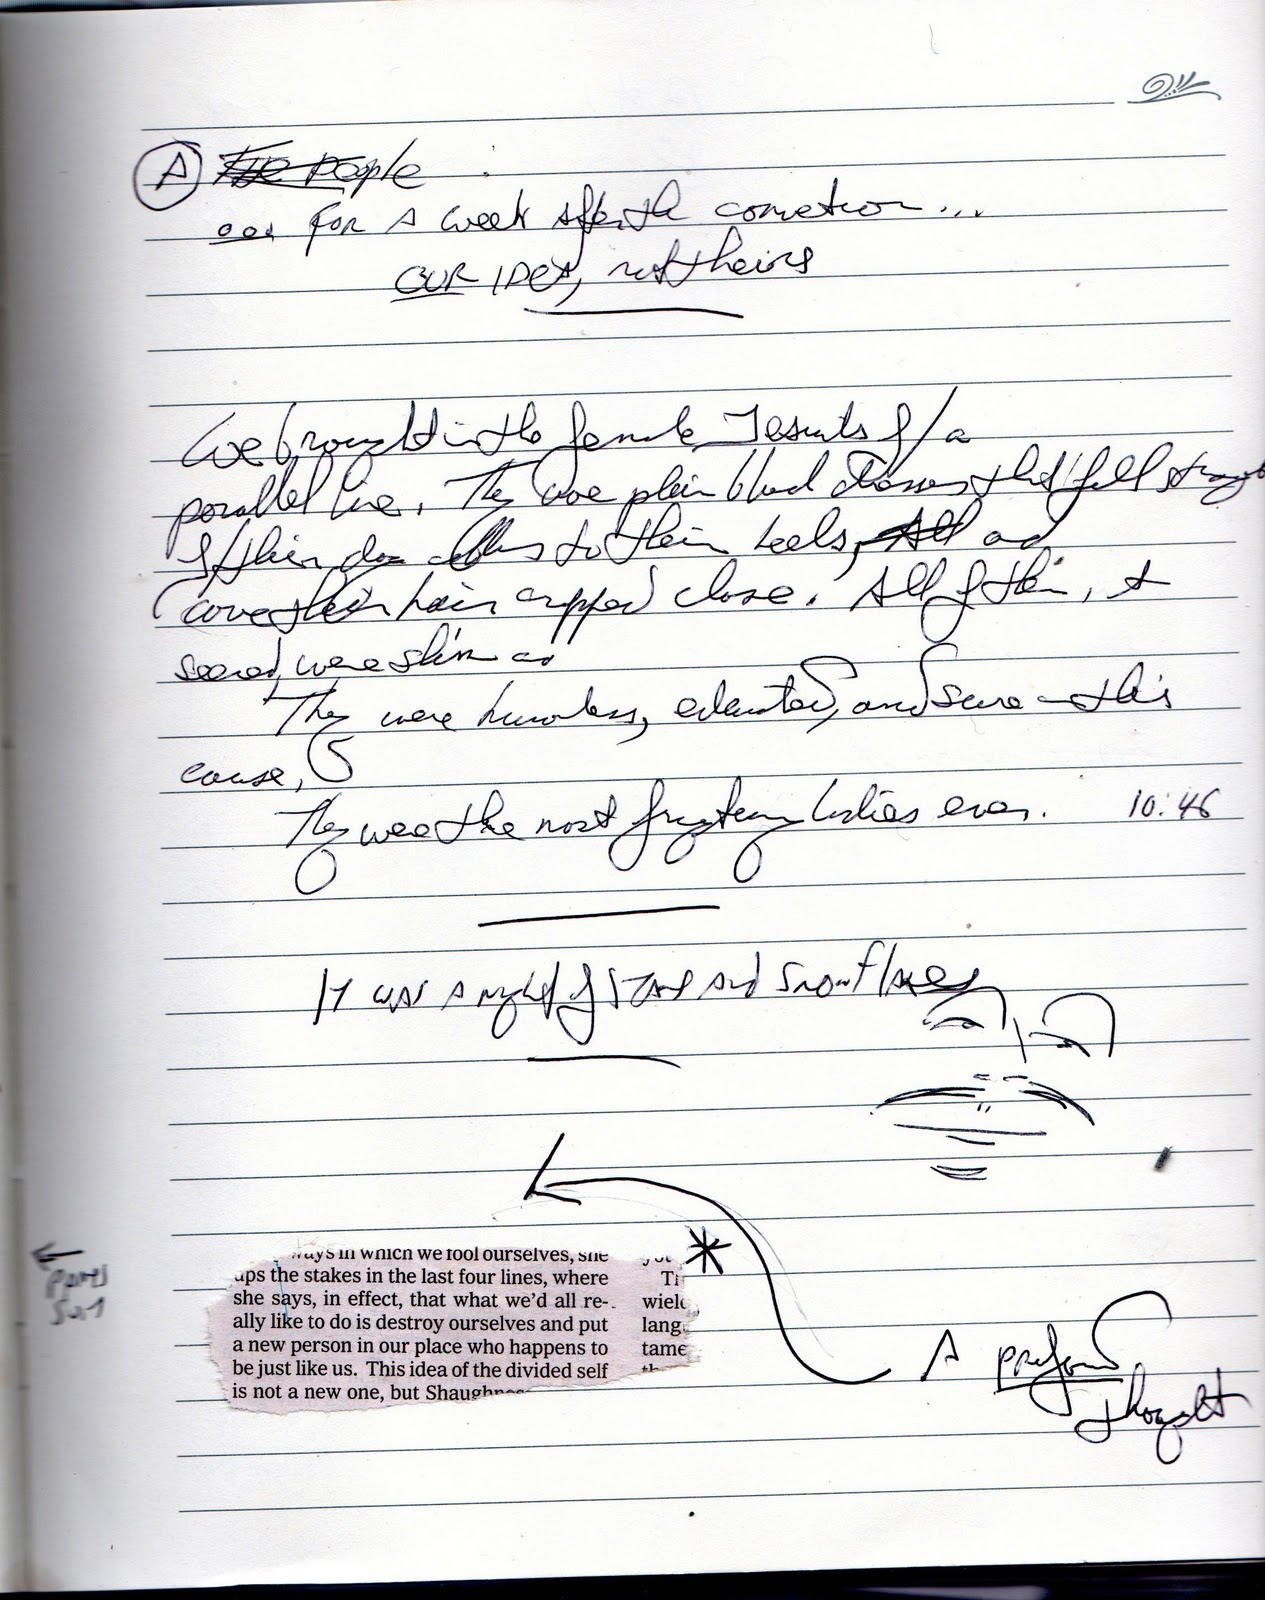 A The People
... FOR A week after the
OUR IDEA, not theirs
We brought in the female Jesuits of / a
parallel live. They wore plain black dresses that fell straight
of their to their heels, All and
wore their hair cropped close. All of them, it
seemed, were slim as
They were humorless, educated, and sure in this
cause,
They were the most frightening ladies ever. 10:46
It was a night of stars and snowflakes
ways in which we fool ourselves, she
ups the stakes in the last four lines, where
she says, in effect, that what we'd all re-
ally like to do is destroy ourselves and put
a new person in our place who happens to
be just like us. This idea of the divided self
is not a new one, but Shaughnes
Ti
wield
lang
tame
*
A profound
thought